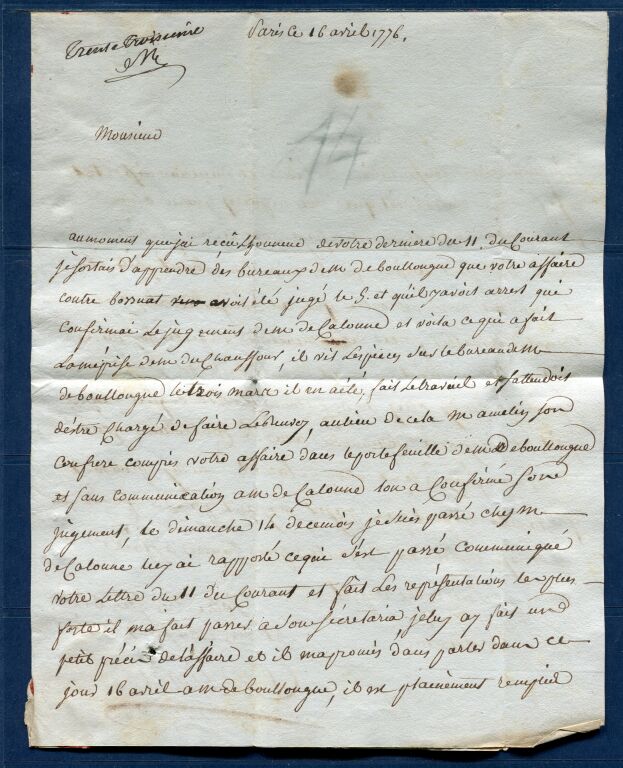 Paris Ce 16 avril 1776.
Trente Troisieme
14
Monsieur
au moment que j'ai recû l'honneur de votre derniere du 11. du Courant
je sortais d'apprendre des bureaux de M de boullongne que votre affaire
contre avoit été jugé le 5. et qu'il y avoit arrest qui
Confirmai Le jugement de M de Calonne et voila ce qui a fait
La méprise de M du Chauffour, il vit Les pièces sur le bureau de M
de boullongne le trois mars il en a été fait le travail et s'attendois
d'estre Chargé de faire Le au lieu de cela M amelin son
Confrere compris votre affaire dans le portefeuille de M De boullongne
et sans communication a M de Calonne lon a Confirmé son
jugement, le dimanche 14 de ce mois je suis passé chez M
de Calonne luy ai rapporté ce qui s'est passé Communiqué
votre Lettre du 11 du Courant et fait Les représentations les plus
forte il m'a fait passer a son Sécrétaria je luy ay fait un
petit précis de l'affaire et il m'a promis d'en parler dans ce
jour 16 avril a M de boullongne, il est plainement